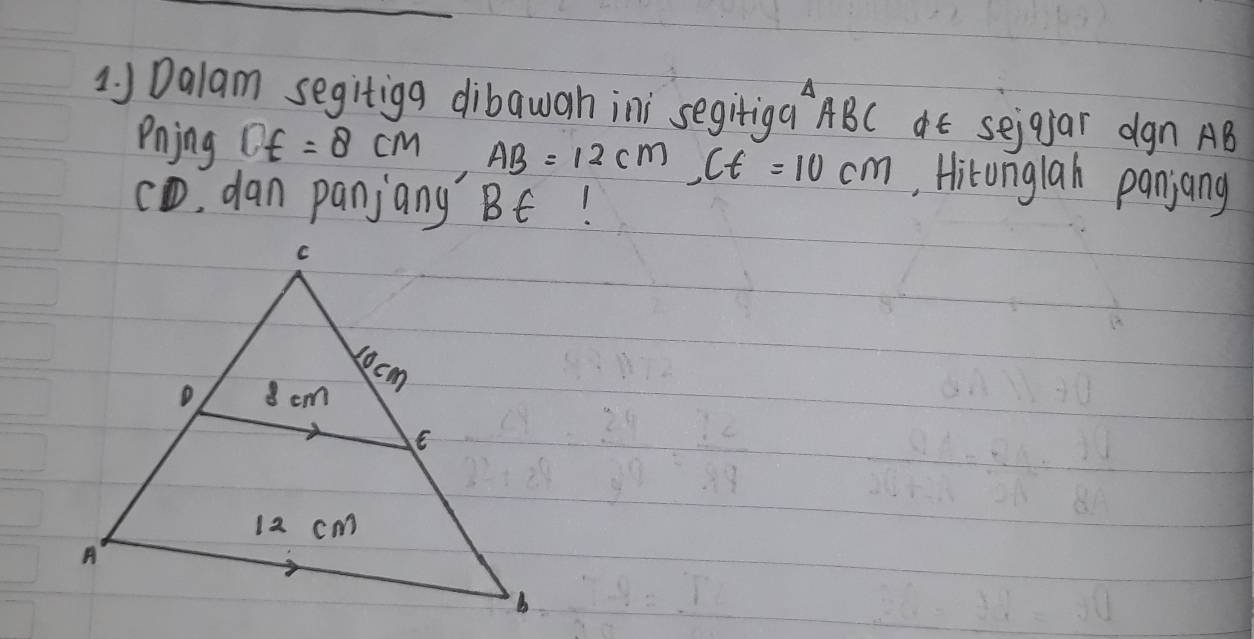 1.) Dalam segitiga dibawah ini segitiga △ ABC DE sejajar dgn AB
Pnjng DE = 8 CM, AB = 12 cm, CE = 10 cm, Hitunglah panjang
CD. dan panjang BE !
C
10cm
D 8 cm
E
12 cm
A
B